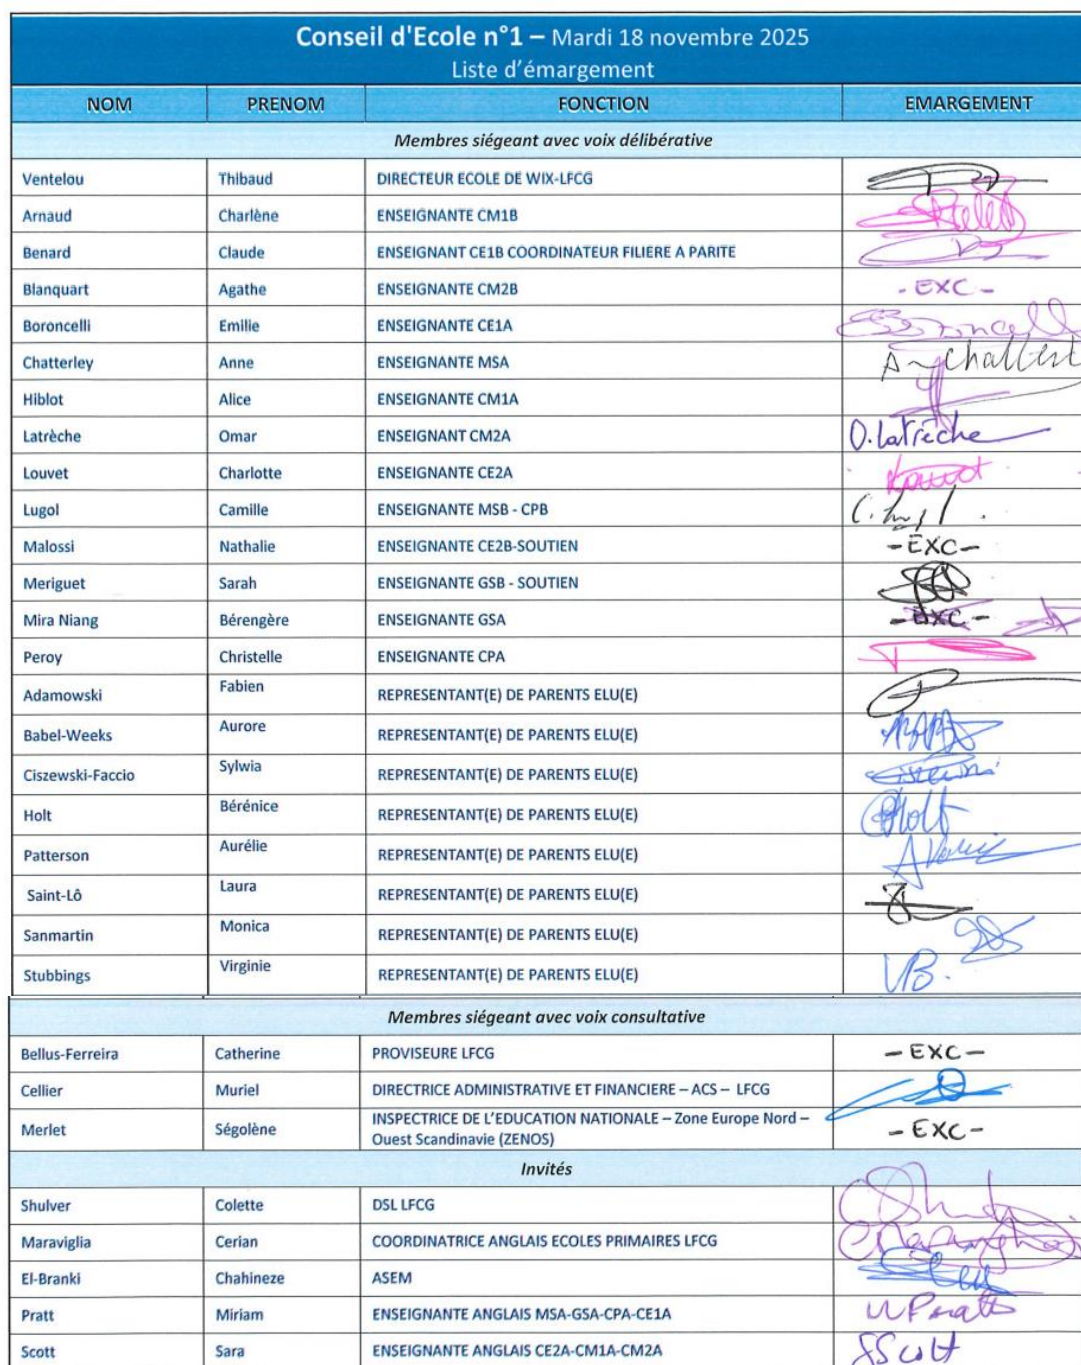 Conseil d'Ecole n°1 – Mardi 18 novembre 2025
Liste d'émargement
NOM PRENOM FONCTION EMARGEMENT
Membres siégeant avec voix délibérative
Ventelou Thibaud DIRECTEUR ECOLE DE WIX-LFCG
Arnaud Charlène ENSEIGNANTE CM1B
Benard Claude ENSEIGNANT CE1B COORDINATEUR FILIERE A PARITE
Blanquart Agathe ENSEIGNANTE CM2B - EXC -
Boroncelli Emilie ENSEIGNANTE CE1A
Chatterley Anne ENSEIGNANTE MSA
Hiblot Alice ENSEIGNANTE CM1A
Latrèche Omar ENSEIGNANT CM2A O. Latrèche
Louvet Charlotte ENSEIGNANTE CE2A
Lugol Camille ENSEIGNANTE MSB - CPB
Malossi Nathalie ENSEIGNANTE CE2B-SOUTIEN - EXC -
Meriguet Sarah ENSEIGNANTE GSB - SOUTIEN
Mira Niang Bérengère ENSEIGNANTE GSA - EXC -
Peroy Christelle ENSEIGNANTE CPA
Adamowski Fabien REPRESENTANT(E) DE PARENTS ELU(E)
Babel-Weeks Aurore REPRESENTANT(E) DE PARENTS ELU(E)
Ciszewski-Faccio Sylwia REPRESENTANT(E) DE PARENTS ELU(E)
Holt Bérénice REPRESENTANT(E) DE PARENTS ELU(E)
Patterson Aurélie REPRESENTANT(E) DE PARENTS ELU(E)
Saint-Lô Laura REPRESENTANT(E) DE PARENTS ELU(E)
Sanmartin Monica REPRESENTANT(E) DE PARENTS ELU(E)
Stubbings Virginie REPRESENTANT(E) DE PARENTS ELU(E) VB.
Membres siégeant avec voix consultative
Bellus-Ferreira Catherine PROVISEURE LFCG - EXC -
Cellier Muriel DIRECTRICE ADMINISTRATIVE ET FINANCIERE – ACS – LFCG
Merlet Ségolène INSPECTRICE DE L'EDUCATION NATIONALE – Zone Europe Nord – - EXC -
Ouest Scandinavie (ZENOS)
Invités
Shulver Colette DSL LFCG
Maraviglia Cerian COORDINATRICE ANGLAIS ECOLES PRIMAIRES LFCG
El-Branki Chahineze ASEM
Pratt Miriam ENSEIGNANTE ANGLAIS MSA-GSA-CPA-CE1A
Scott Sara ENSEIGNANTE ANGLAIS CE2A-CM1A-CM2A SScott